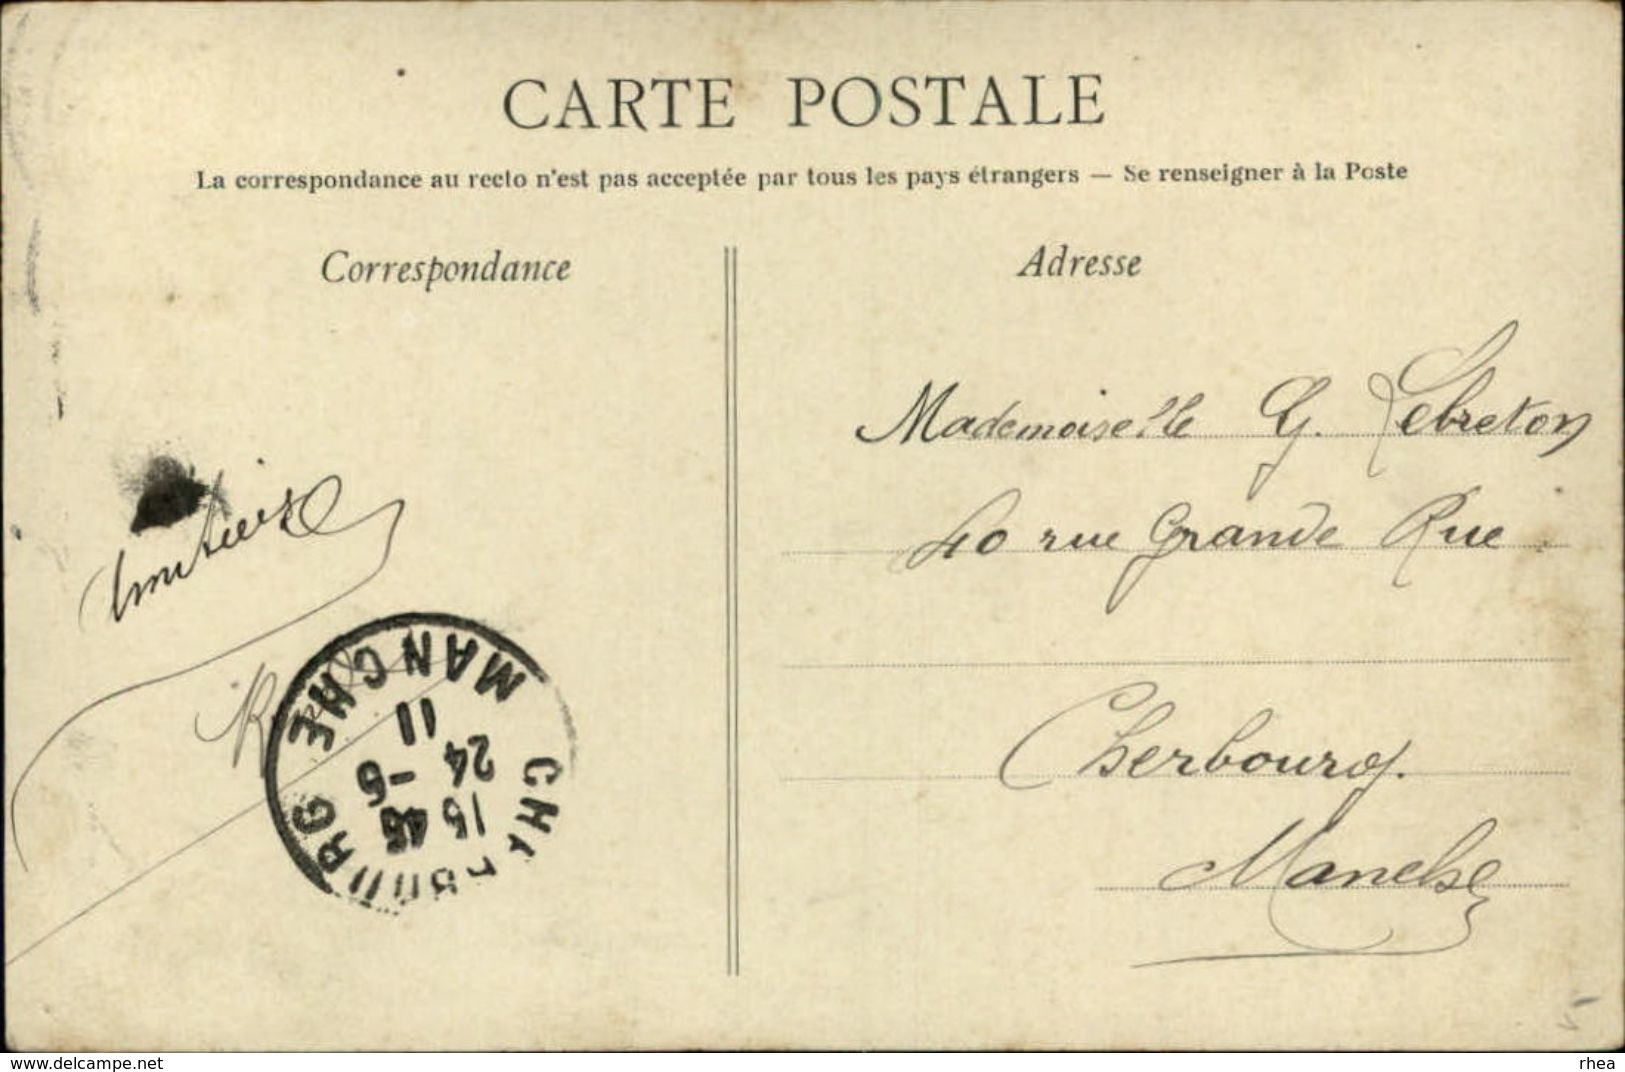 CARTE POSTALE
La correspondance au recto n'est pas acceptée par tous les pays étrangers — Se renseigner à la Poste
Correspondance
Adresse
Mademoiselle G. Lebreton
40 rue Grande Rue
Cherbourg.
Manche
CHERBOURG
MANCHE
15 45
24 -5
11
www.delcampe.net
rhea